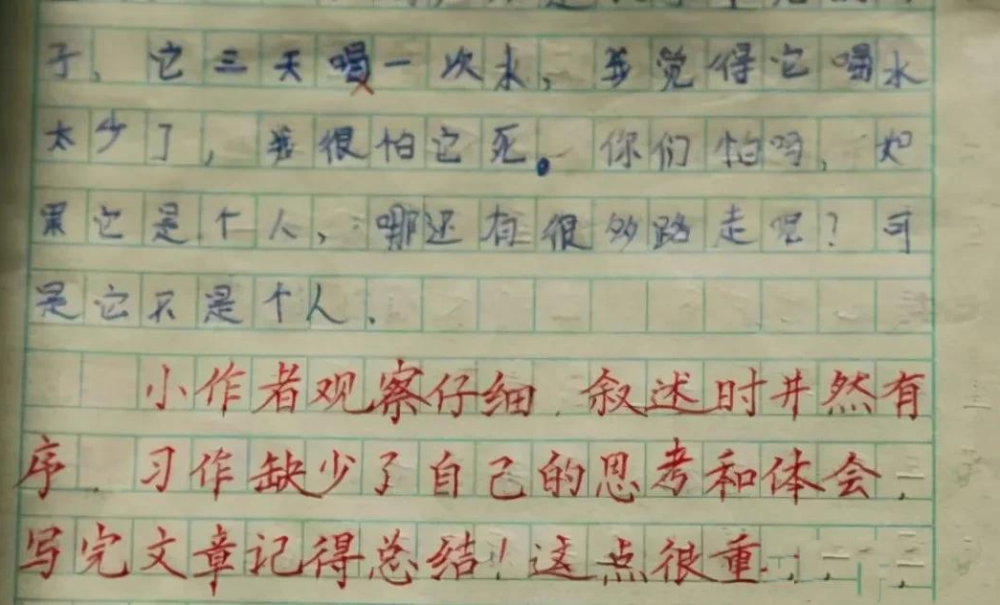 子，它三天喝一次水，我觉得它喝水
太少了，我很怕它死。你们怕吗，如
果它是个人，哪还有很多路走呢？可
是它不是个人.
小作者观察仔细.叙述时井然有
序.习作缺少了自己的思考和体会，
写完文章记得总结！这点很重